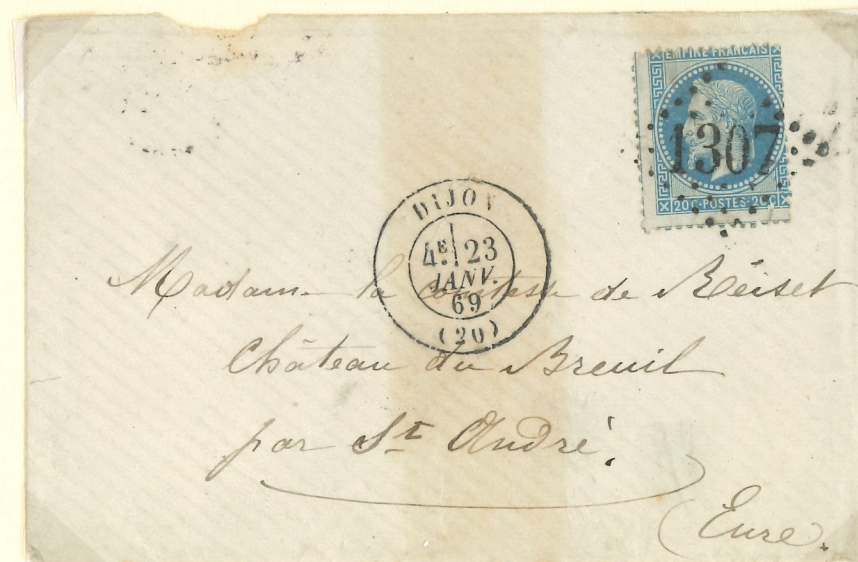 EMPIRE FRANCAIS
1307
20C·POSTES·20C
DIJON
4E 23
JANV.
69
(20)
Madame la Comtesse de Reiset
Château du Breuil
par St André.
Eure.